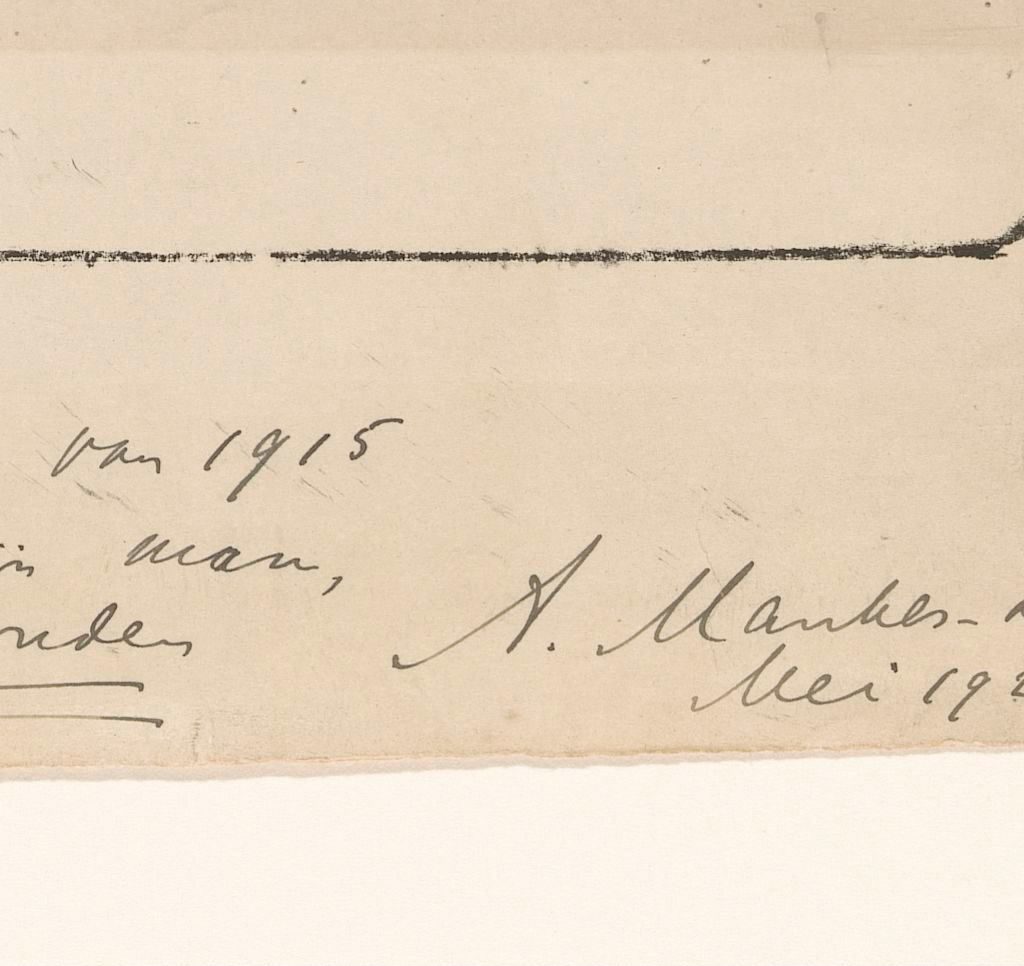 van 1915
man,
A. Mankes-
Mei 19